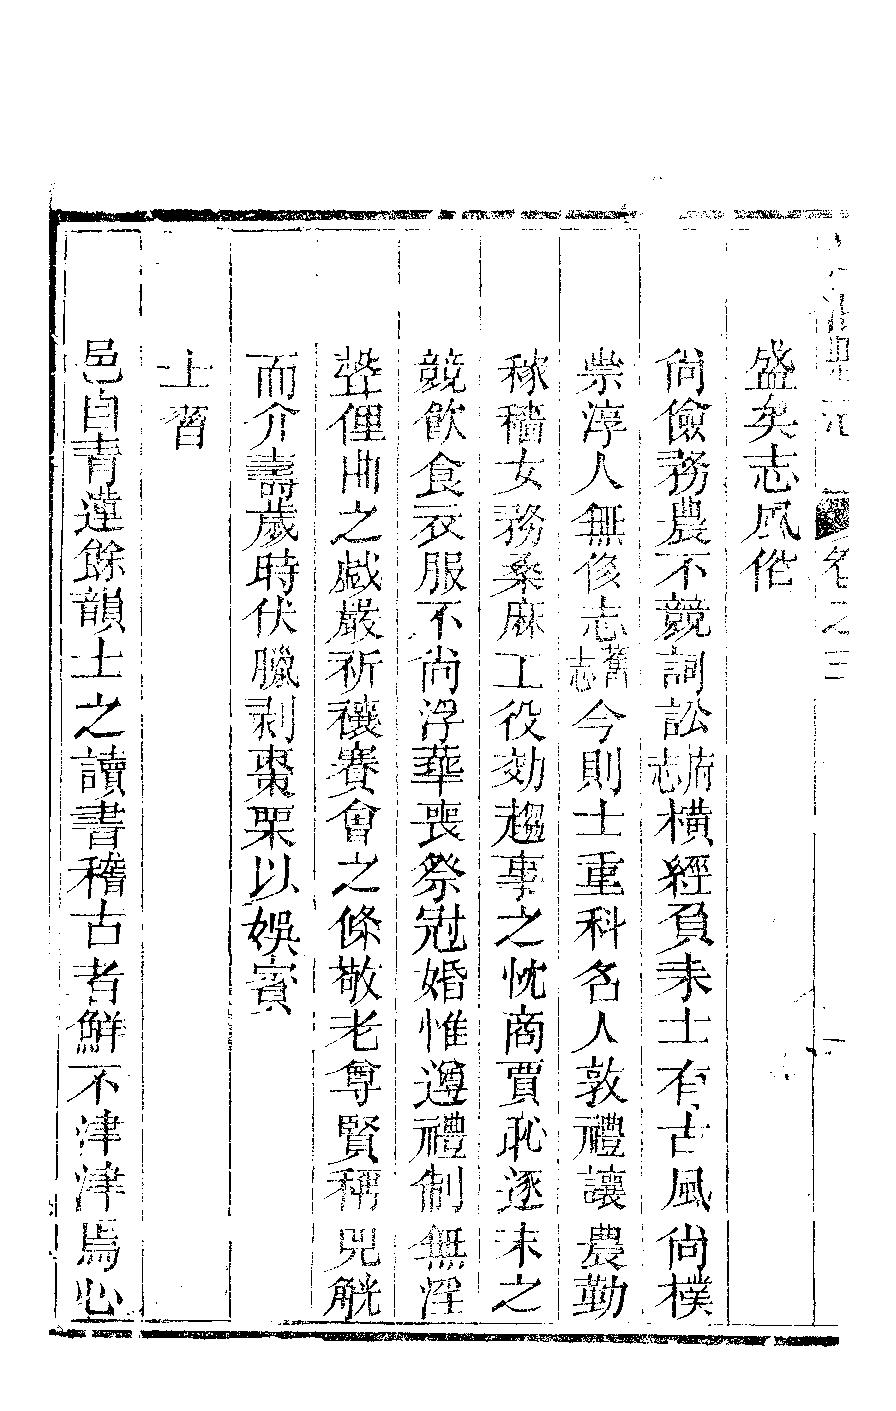 卷之三
盛矣志風俗
尚儉務農不競詞訟府志橫經負耒士有古風尚樸
崇淳人無侈志舊志今則士重科名人敦禮讓農勤
稼穡女務桑麻工役効趨事之忱商賈恥逐末之
競飲食衣服不尚浮華喪祭冠婚惟遵禮制無淫
聲俚曲之臧嚴祈禳賽會之條敬老尊賢稱兕觥
而介壽歲時伏臘剥棗栗以娛賓
士習
邑自青蓮餘韻士之讀書稽古者鮮不津津焉心